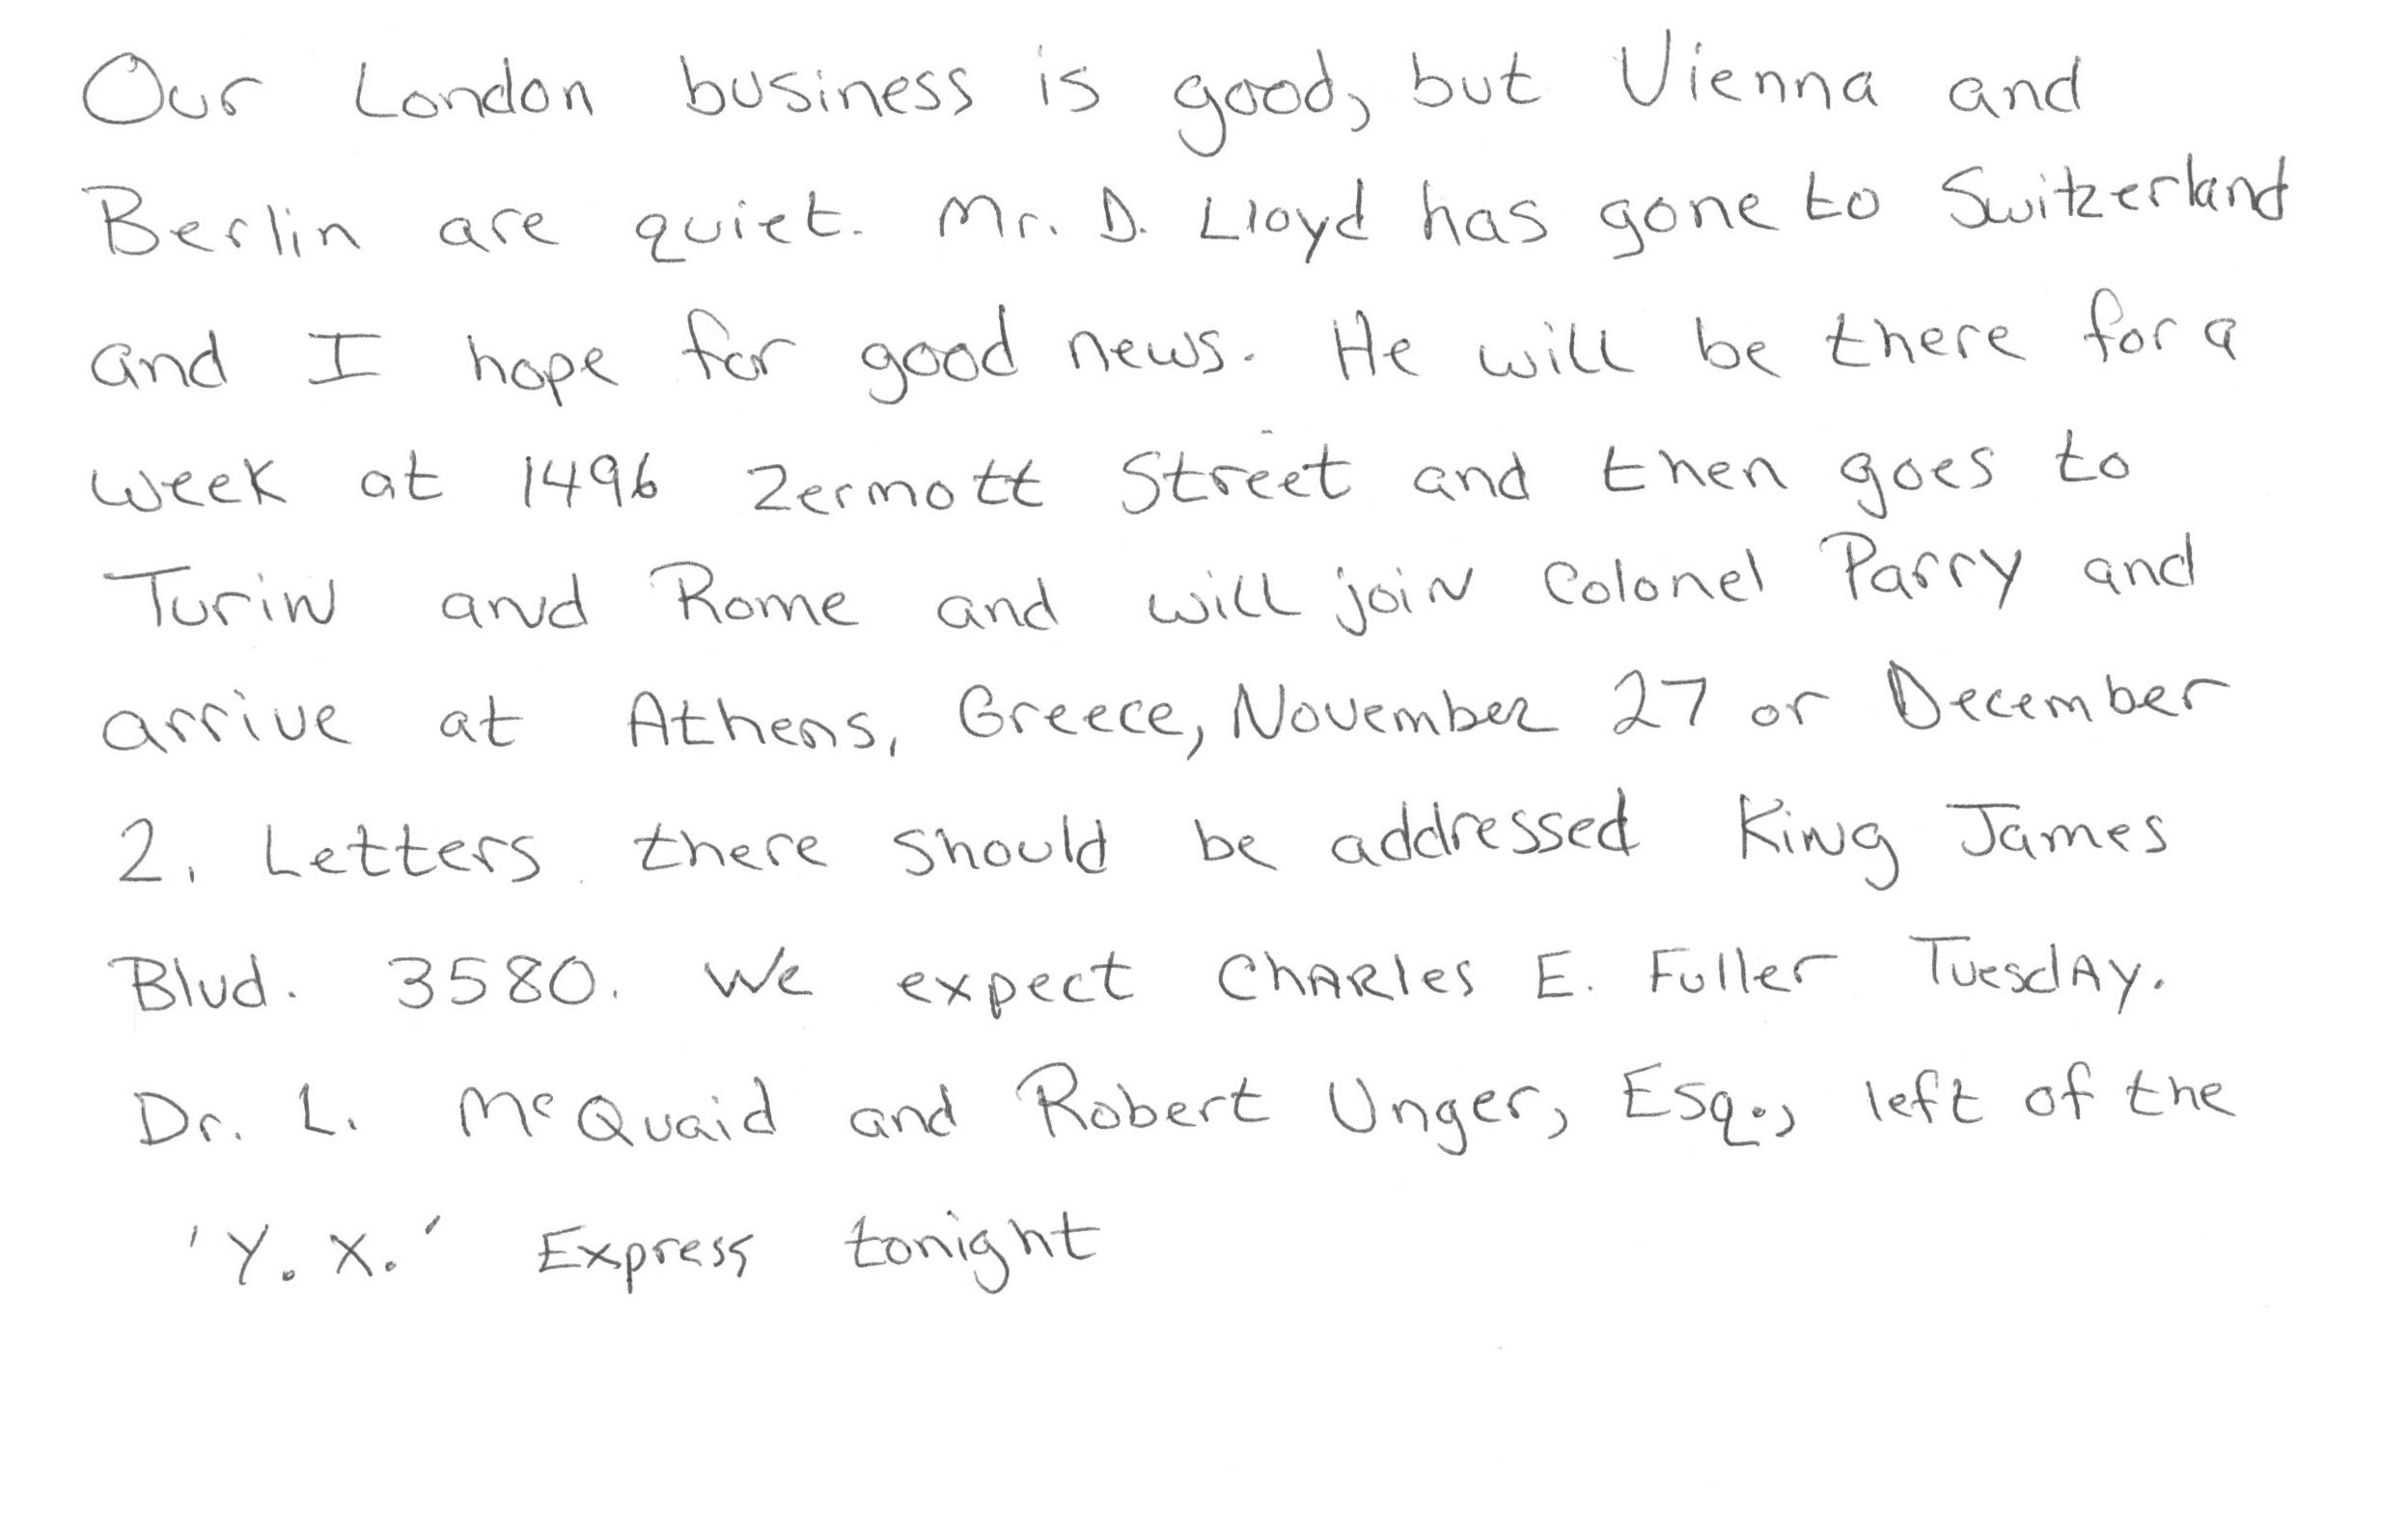 Our London business is good, but Vienna and
Berlin are quiet. Mr. D. Lloyd has gone to Switzerland
and I hope for good news. He will be there for a
week at 1496 Zermott Street and then goes to
Turin and Rome and will join Colonel Parry and
arrive at Athens, Greece, November 27 or December
2. Letters there should be addressed King James
Blvd. 3580. We expect Charles E. Fuller Tuesday.
Dr. L. McQuaid and Robert Unger, Esq., left of the
'Y. X.' Express tonight